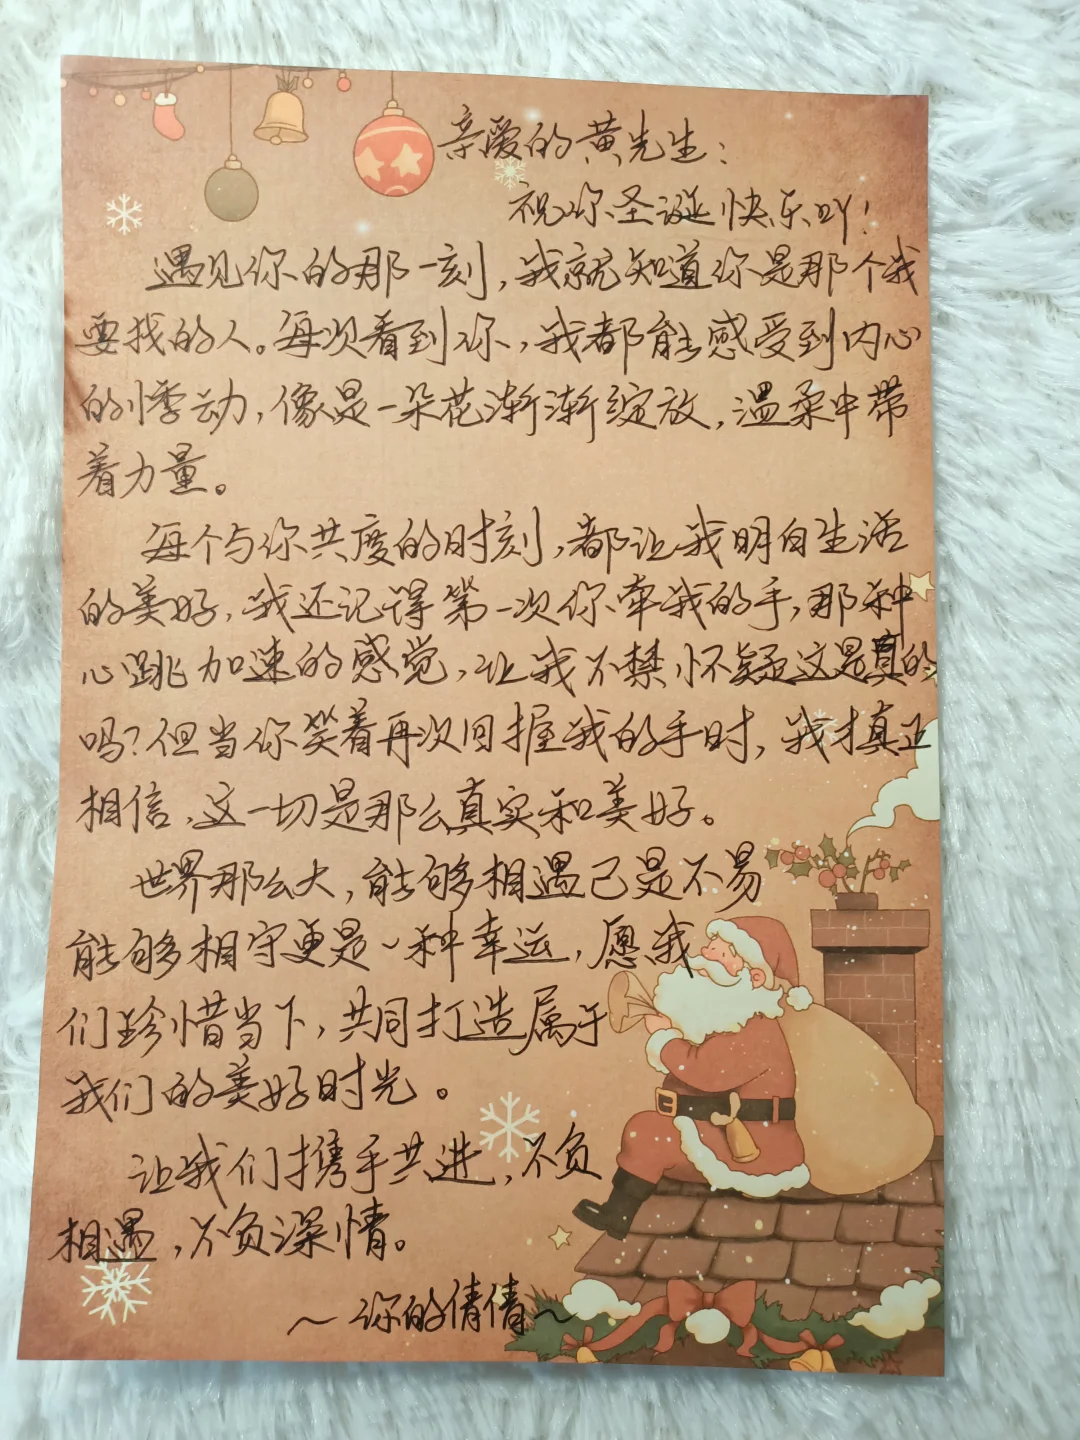 亲爱的黄先生：
祝你圣诞快乐吖！
遇见你的那一刻，我就知道你是那个我
要找的人。每次看到你，我都能感受到内心
的悸动，像是一朵花渐渐绽放，温柔中带
着力量。
每个与你共度的时刻，都让我明白生活
的美好，我还记得第一次你牵我的手，那种
心跳加速的感觉，让我不禁怀疑这是真的
吗？但当你笑着再次回握我的手时，我才真正
相信，这一切是那么真实和美好。
世界那么大，能够相遇已是不易
能够相守更是一种幸运，愿我
们珍惜当下，共同打造属于
我们的美好时光。
让我们携手共进，不负
相遇，不负深情。
～你的倩倩～